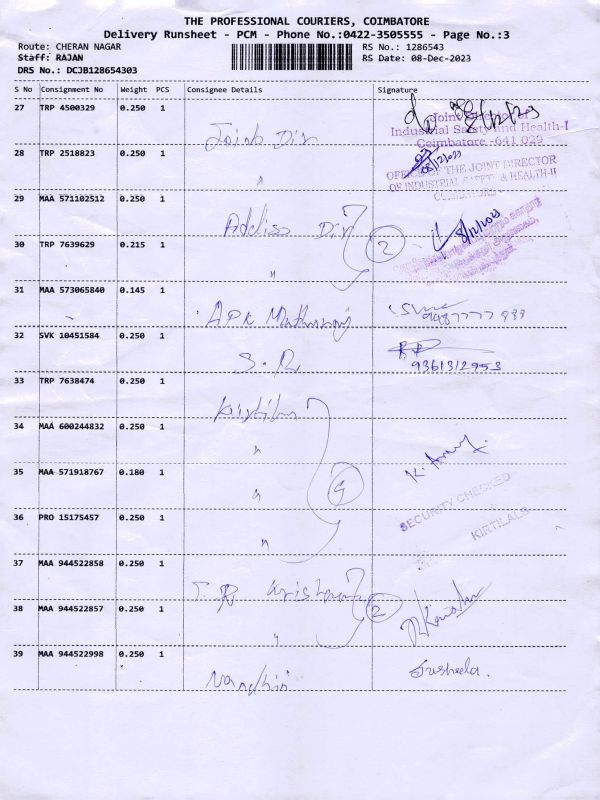 THE PROFESSIONAL COURIERS, COIMBATORE
Delivery Runsheet - PCM - Phone No.:0422-3505555 - Page No.:3
Route: CHERAN NAGAR RS No.: 1286543
Staff: RAJAN RS Date: 08-Dec-2023
DRS No.: DCJB128654303
S No Consignment No Weight PCS Consignee Details Signature
27 TRP 4500329 0.250 1 Joint Dir
Joint Director of
Industrial Safety and Health-I
Coimbatore -641 029
28 TRP 2518823 0.250 1 "
08/12/2023
OFFICE OF THE JOINT DIRECTOR
OF INDUSTRIAL SAFETY & HEALTH-II
COIMBATORE
29 MAA 571102512 0.250 1 Dir
2 8/12/2023
30 TRP 7639629 0.215 1 "
31 MAA 573065840 0.145 1 APK
32 SVK 10451584 0.250 1 S.R
9361312953
33 TRP 7638474 0.250 1
34 MAA 600244832 0.250 1 "
35 MAA 571918767 0.180 1 "
SECURITY CHECKED
KIRTILALS
36 PRO 15175457 0.250 1 "
37 MAA 944522858 0.250 1
2
38 MAA 944522857 0.250 1 "
39 MAA 944522998 0.250 1 Nandhini Susheela.